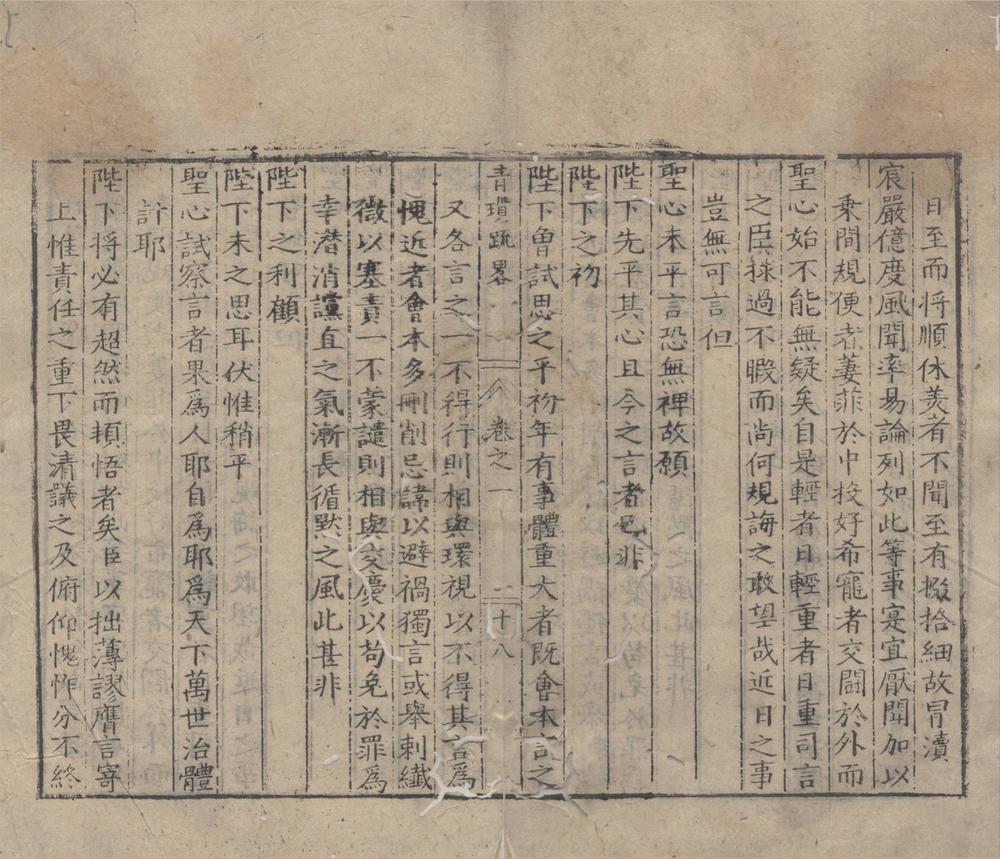 日至而將順休美者不聞至有掇拾細故冒瀆
宸嚴億度風聞率易論列如此等事寔宜厭聞加以
乘間規便者萋菲於中投好希寵者交鬪於外而
聖心始不能無疑矣自是輕者日輕重者日重司言
之臣捄過不暇而尚何規誨之敢望哉近日之事
豈無可言但
聖心未平言恐無裨故願
陛下先平其心且今之言者邑非
陛下之初
陛下曾試思之乎初年有事體重大者既會本言之
青瑣疏畧 卷之一 二十八
又各言之一不得行則相與環視以不得其言為
愧近者會本多刪削忌諱以避禍獨言或舉剌纖
微以塞責一不蒙譴則相與交慶以苟免於罪為
幸潛消讜直之氣漸長循默之風此甚非
陛下之利顧
陛下未之思耳伏惟稍平
聖心試察言者果為人耶自為耶為天下萬世治體
計耶
陛下將必有超然而頓悟者矣臣以拙薄謬膺言寄
上惟責任之重下畏清議之及俯仰愧怍分不終